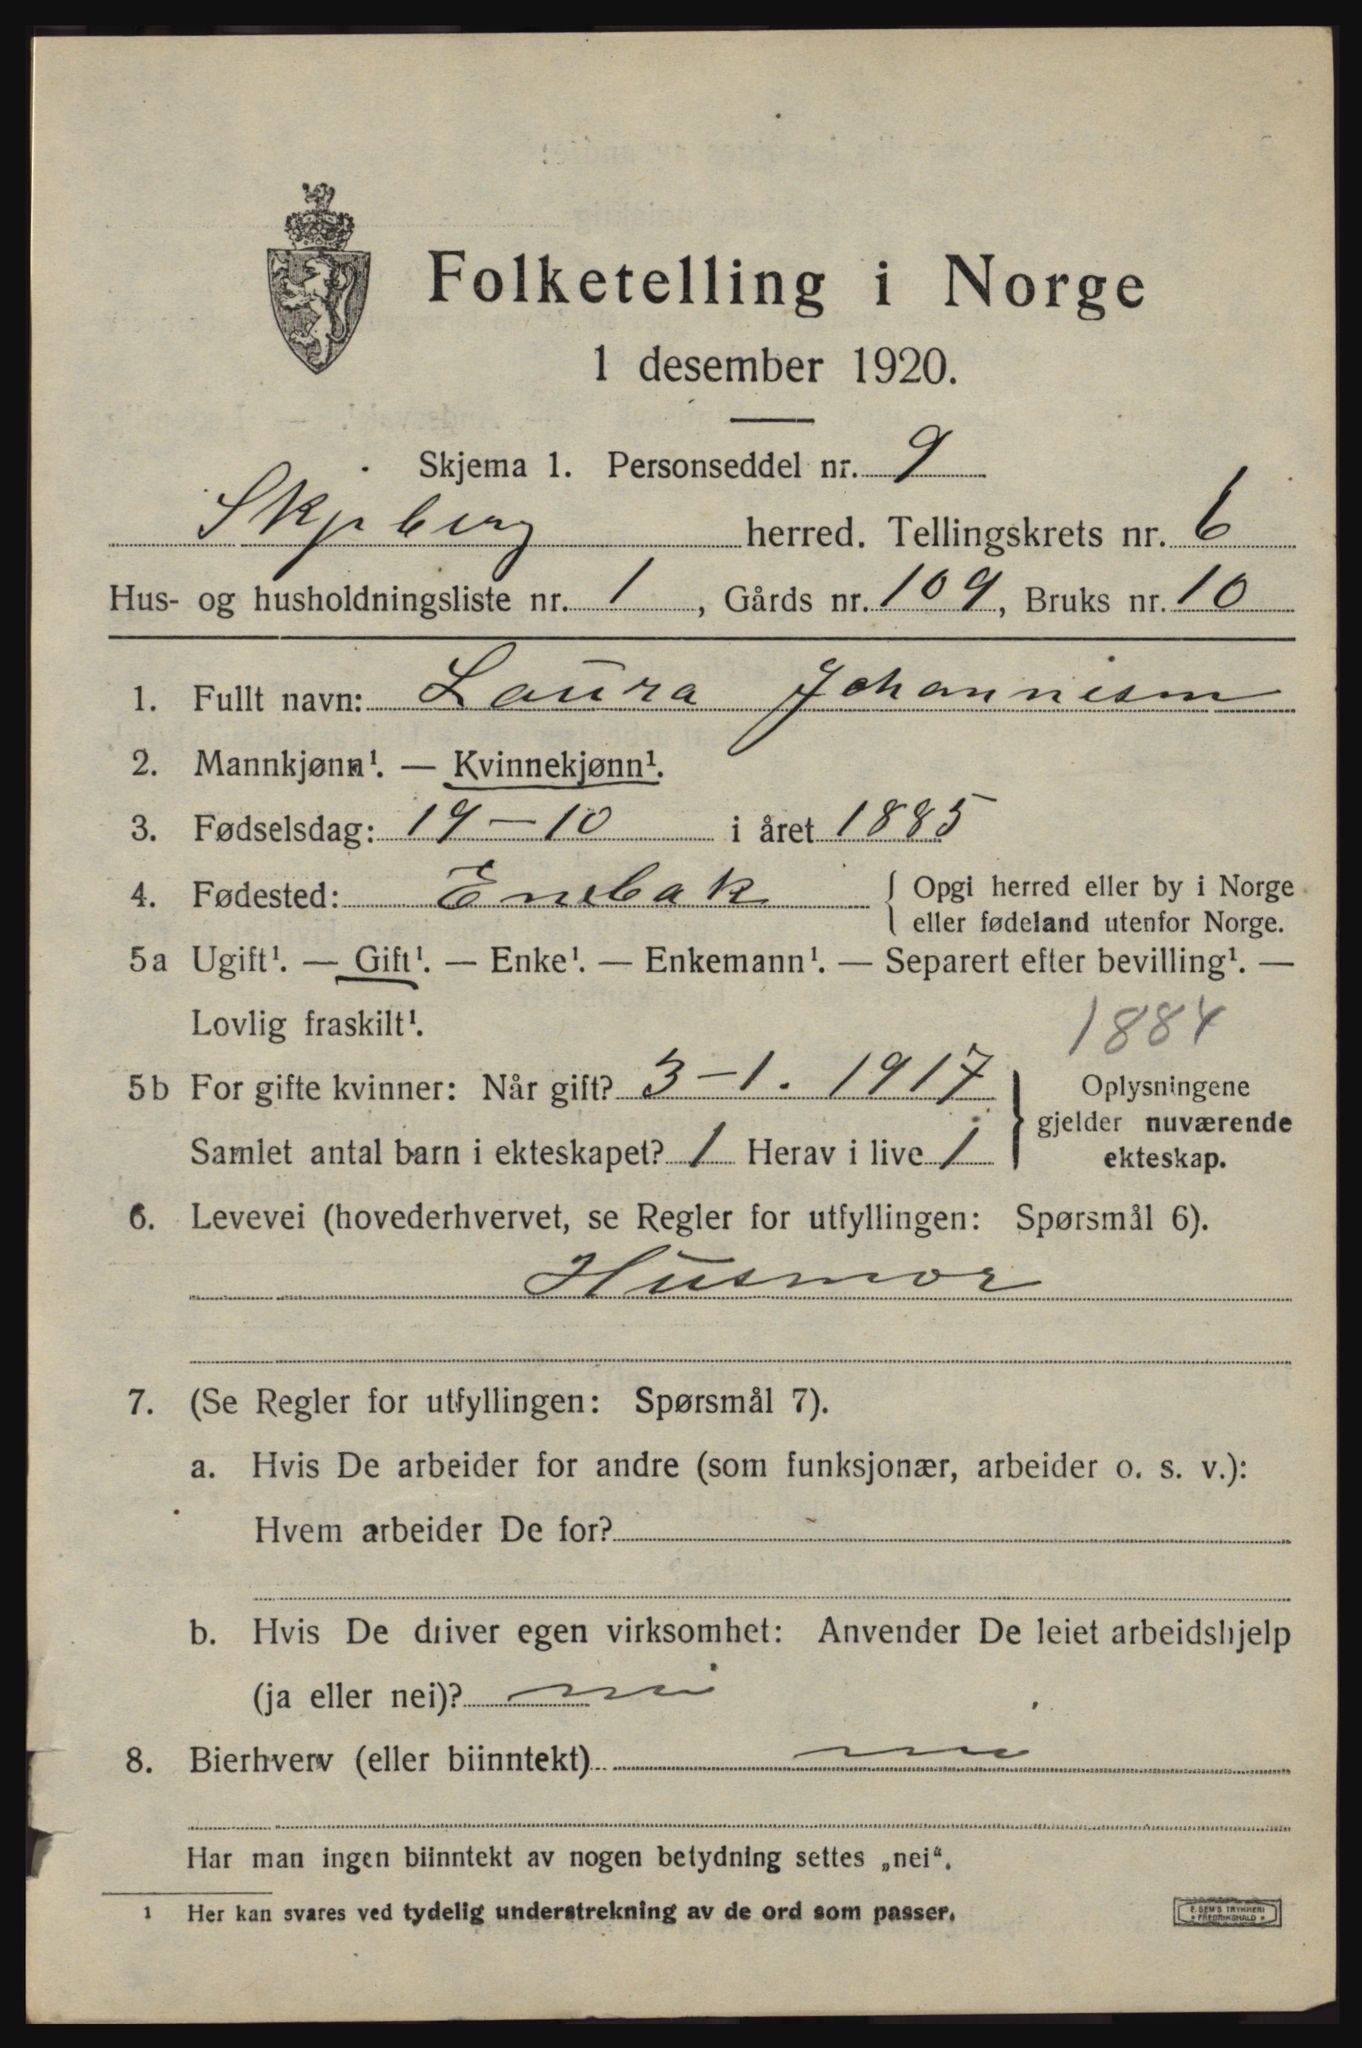 Folketelling i Norge
1 desember 1920.
Skjema 1. Personseddel nr. 9
Skjeberg herred. Tellingskrets nr. 6
Hus- og husholdningsliste nr. 1, Gårds nr. 109, Bruks nr. 10
1. Fullt navn: Laura Johannesen
2. Mannkjønn¹. — Kvinnekjønn¹.
3. Fødselsdag: 19 – 10 i året 1885
4. Fødested: Enebak { Opgi herred eller by i Norge
eller fødeland utenfor Norge.
5a Ugift¹. — Gift¹. — Enke¹. — Enkemann¹. — Separert efter bevilling¹. —
Lovlig fraskilt¹.
1884
5b For gifte kvinner: Når gift? 3 – 1. 1917 } Oplysningene
gjelder nuværende
Samlet antal barn i ekteskapet? 1 Herav i live 1 ekteskap.
6. Levevei (hovederhvervet, se Regler for utfyllingen: Spørsmål 6).
Husmor
7. (Se Regler for utfyllingen: Spørsmål 7).
a. Hvis De arbeider for andre (som funksjonær, arbeider o. s. v.):
Hvem arbeider De for?
b. Hvis De driver egen virksomhet: Anvender De leiet arbeidshjelp
(ja eller nei)? nei
8. Bierhverv (eller biinntekt) nei
Har man ingen biinntekt av nogen betydning settes „nei“.
1 Her kan svares ved tydelig understrekning av de ord som passer.
E. SEM'S TRYKKERI
FREDRIKSHALD